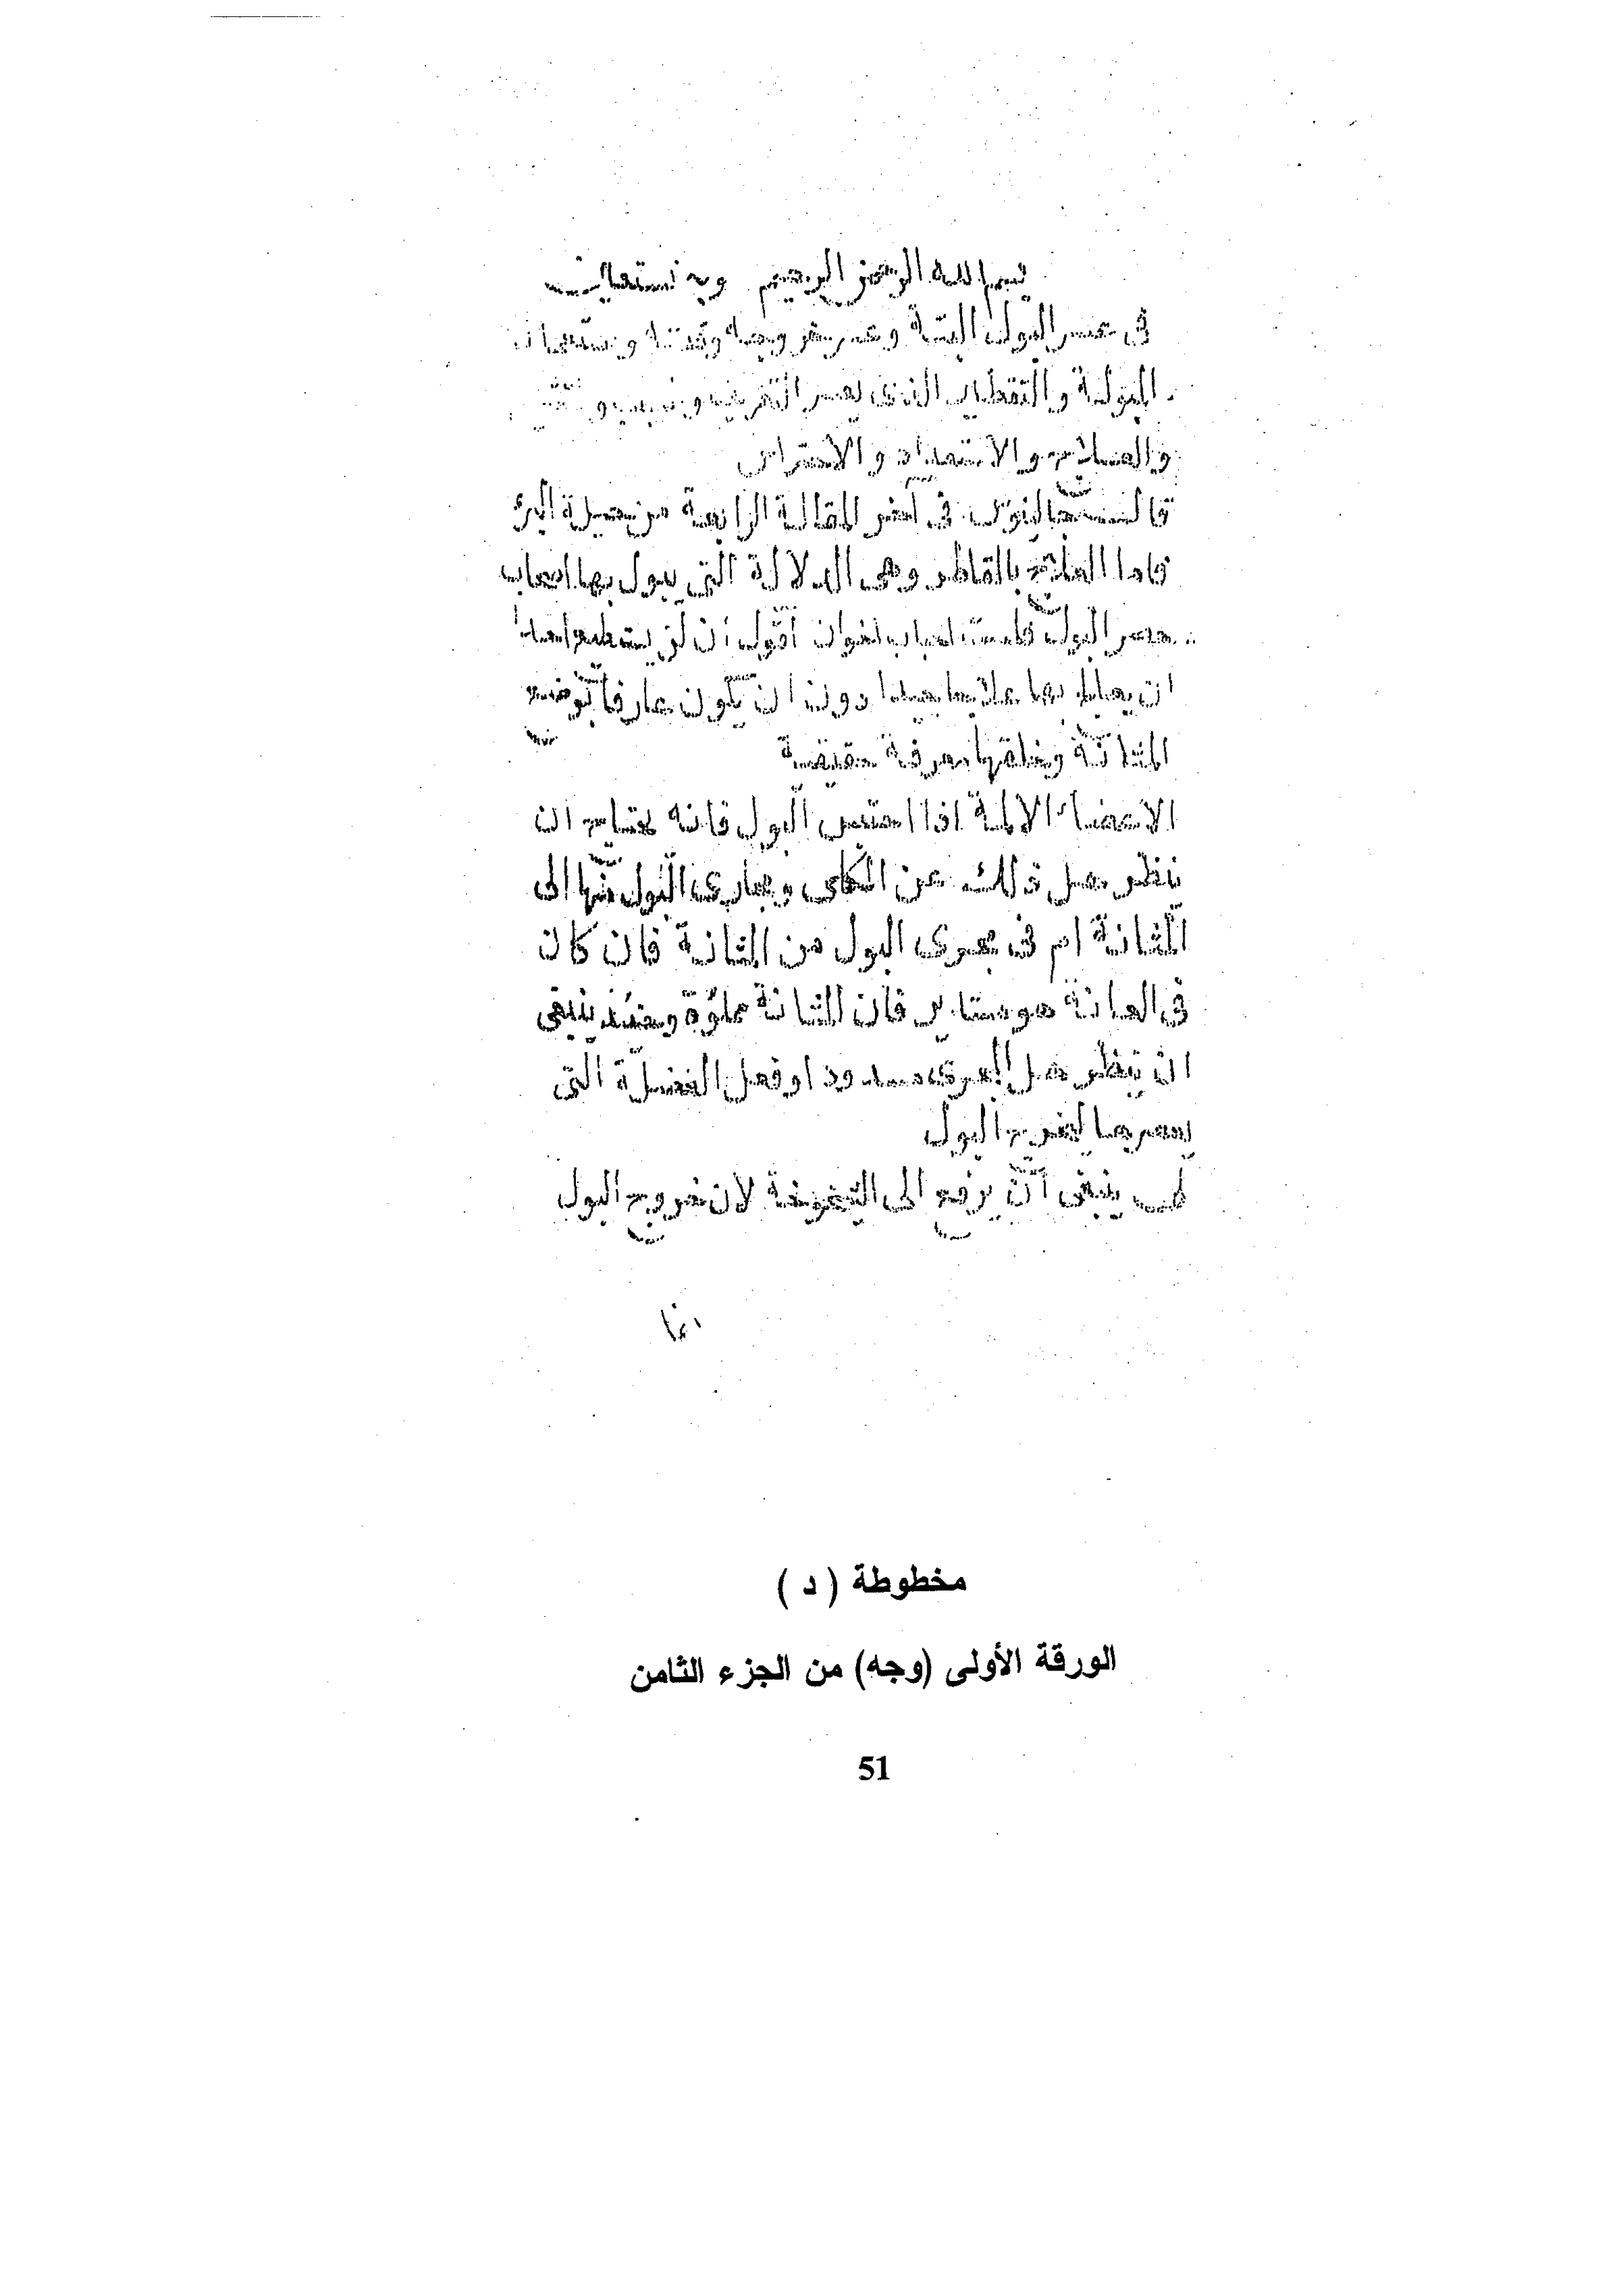 بسم الله الرحمن الرحيم وبه نستعين
فى عسر البول البتة وعسر خروجه وقلته
البولة والتقطير الذى
والعلاج والاستعداد والاحتراس
قال جالينوس فى اخر المقالة الرابعة من حيلة البرء
فاما العلاج بالقاطر وهى الدلالة التى يبول بها اصحاب
حصر البول اقول ان لن يستطيع احد
ان يعالج بها علاجا جيدا دون ان تكون عارفا بوضع
المثانة وخلقها معرفة حقيقية
الاعضاء الالمة اذا احتبس البول فانه يحتاج ان
ننظر هل ذلك عن الكلى ومجارى البول منها الى
المثانة ام فى مجرى البول من المثانة فان كان
فى العانة فان المثانة مملؤة وحينئذ ينبغى
ان تنظر هل المجرى مسدود او فعل العضلة التى
يعصرها ليخرج البول
لى ينبغى ان يرفع الى النخوخة لان خروج البول
انما
مخطوطة ( د )
الورقة الأولى (وجه) من الجزء الثامن
51